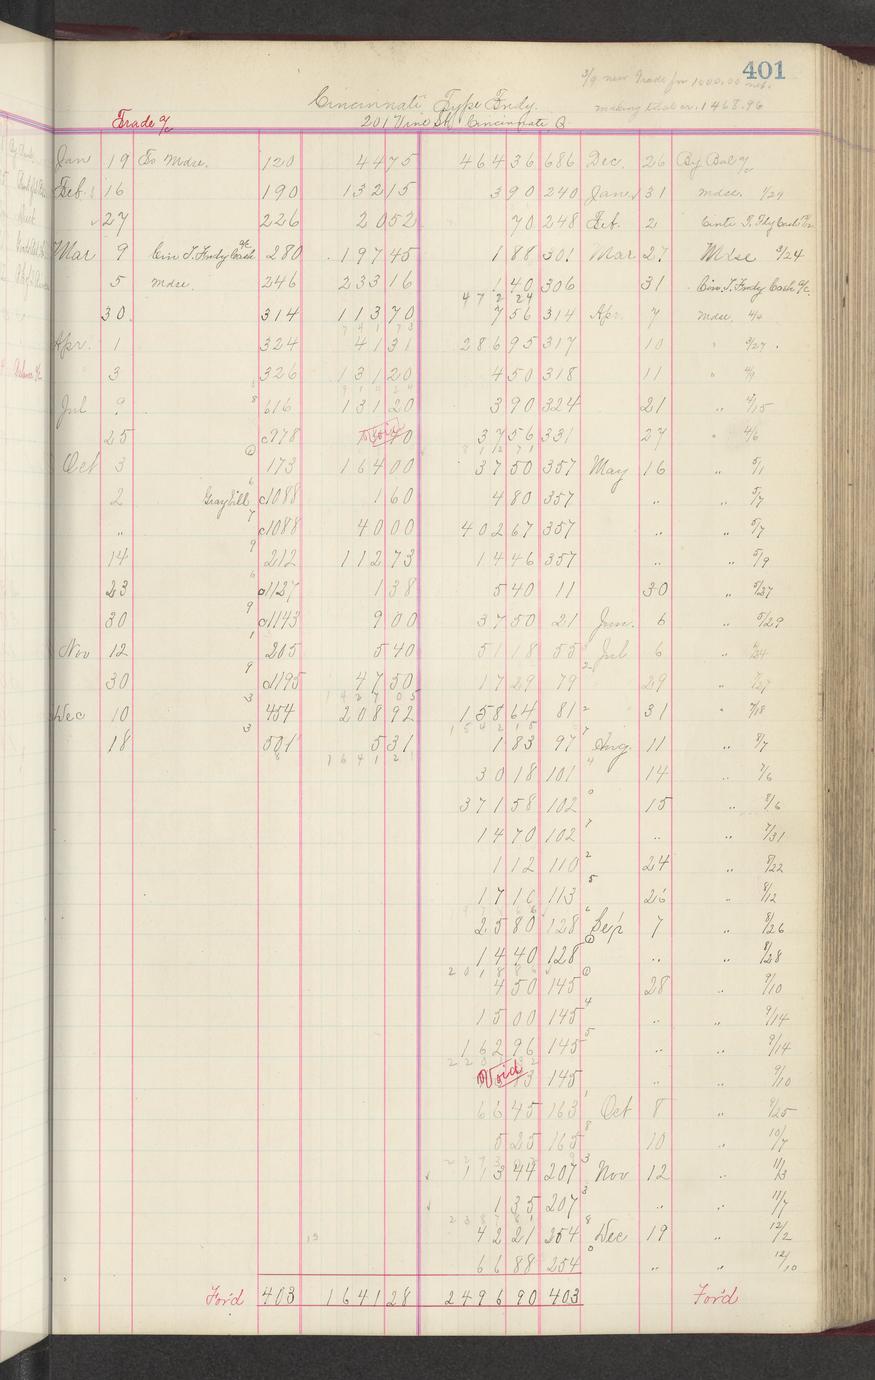 401
3/9 new Trade for 1000.00 net.
making total cr. 1468.96
Cincinnati Type Fndy.
Trade a/c 201 Vine St. Cincinnati O
Jan 19 To Mdse. 120 44 75 464 36 686 Dec. 26 By Bal a/c
Feb. 16 190 132 15 3 90 240 Jan 31 mdse. 1/29
27 226 20 52 70 248 Feb. 2
Mar 9 Cin T. Fndy Cash a/c 280 197 45 1 88 301 Mar 27 Mdse 3/24
5 mdse. 246 233 16 1 40 306 31 Cin. T. Fndy Cash a/c.
472 24
30. 314 113 70 7 56 314 Apr. 7 mdse. 4/4
741 73
Apr. 1 324 41 31 286 95 317 10 " 3/27
3 326 131 20 4 50 318 11 " 4/9
Jul 9 616 131 20 3 90 324 21 " 4/15
25 c978 Void 40 37 56 331 27 " 4/6
Oct 3 173 164 00 37 50 357 May 16 " 5/1
2 Graybill c1088 1 60 4 80 357 " " 5/7
" c1088 40 00 402 67 357 " " 5/7
14 212 112 73 14 46 357 " " 5/9
23 c1127 1 38 5 40 11 30 " 5/27
30 c1143 9 00 37 50 21 Jun. 6 " 5/29
Nov 12 205 5 40 51 18 55 Jul 6 "
30 c1195 47 50 17 29 79 29 "
1427 05
Dec 10 454 208 92 158 64 81 31 " 7/18
1542 15
18 501 5 31 1 83 97 Aug. 11 " 8/7
1641 21
30 18 101 14 " 8/6
371 58 102 15 " 8/6
14 70 102 " " 7/31
1 12 110 24 " 8/22
17 10 113 26 " 8/12
25 80 128 Sep 7 " 8/26
14 40 128 " " 8/28
4 50 145 28 " 9/10
15 00 145 " " 9/14
162 96 145 " " 9/14
Void 145 " " 9/10
66 45 163 Oct 8 " 9/25
5 25 165 10 " 10/7
113 44 207 Nov 12 " 11/3
1 35 207 " " 11/7
42 21 254 Dec 19 " 12/2
66 88 254 " " 12/10
For'd 403 1641 28 2496 90 403 For'd